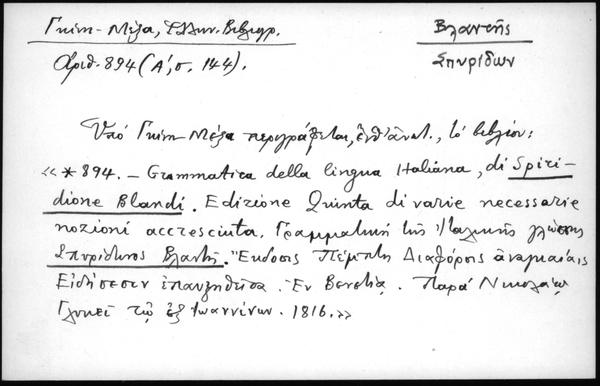 Γκίνη - Μέξα, Ἑλλην. Βιβλιογρ.
Βλαντῆς
Ἀριθ. 894 (Α', σ. 144).
Σπυρίδων
Ὑπό Γκίνη Μέξα περιγράφεται, ἐνθ' ἀνωτ., τό βιβλίον:
«*894. – Grammatica della lingua Italiana, di Spiri-
dione Blandi. Edizione Quinta di varie necessarie
nozioni accresciuta. Γραμματική τῆς Ἰταλικῆς γλώσσης
Σπυρίδωνος Βλαντῆ. Ἔκδοσις Πέμπτη Διαφόροις ἀναγκαίαις
Εἰδήσεσιν ἐπαυξηθεῖσα. Ἐν Βενετίᾳ. Παρά Νικολάῳ
Γλυκεῖ τῷ ἐξ Ἰωαννίνων. 1816.»